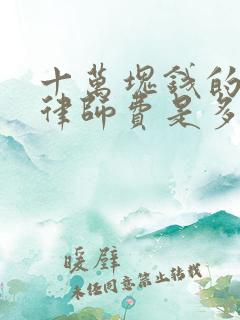 十萬塊錢的
律師費是多
暖壁
未经同意禁止转载